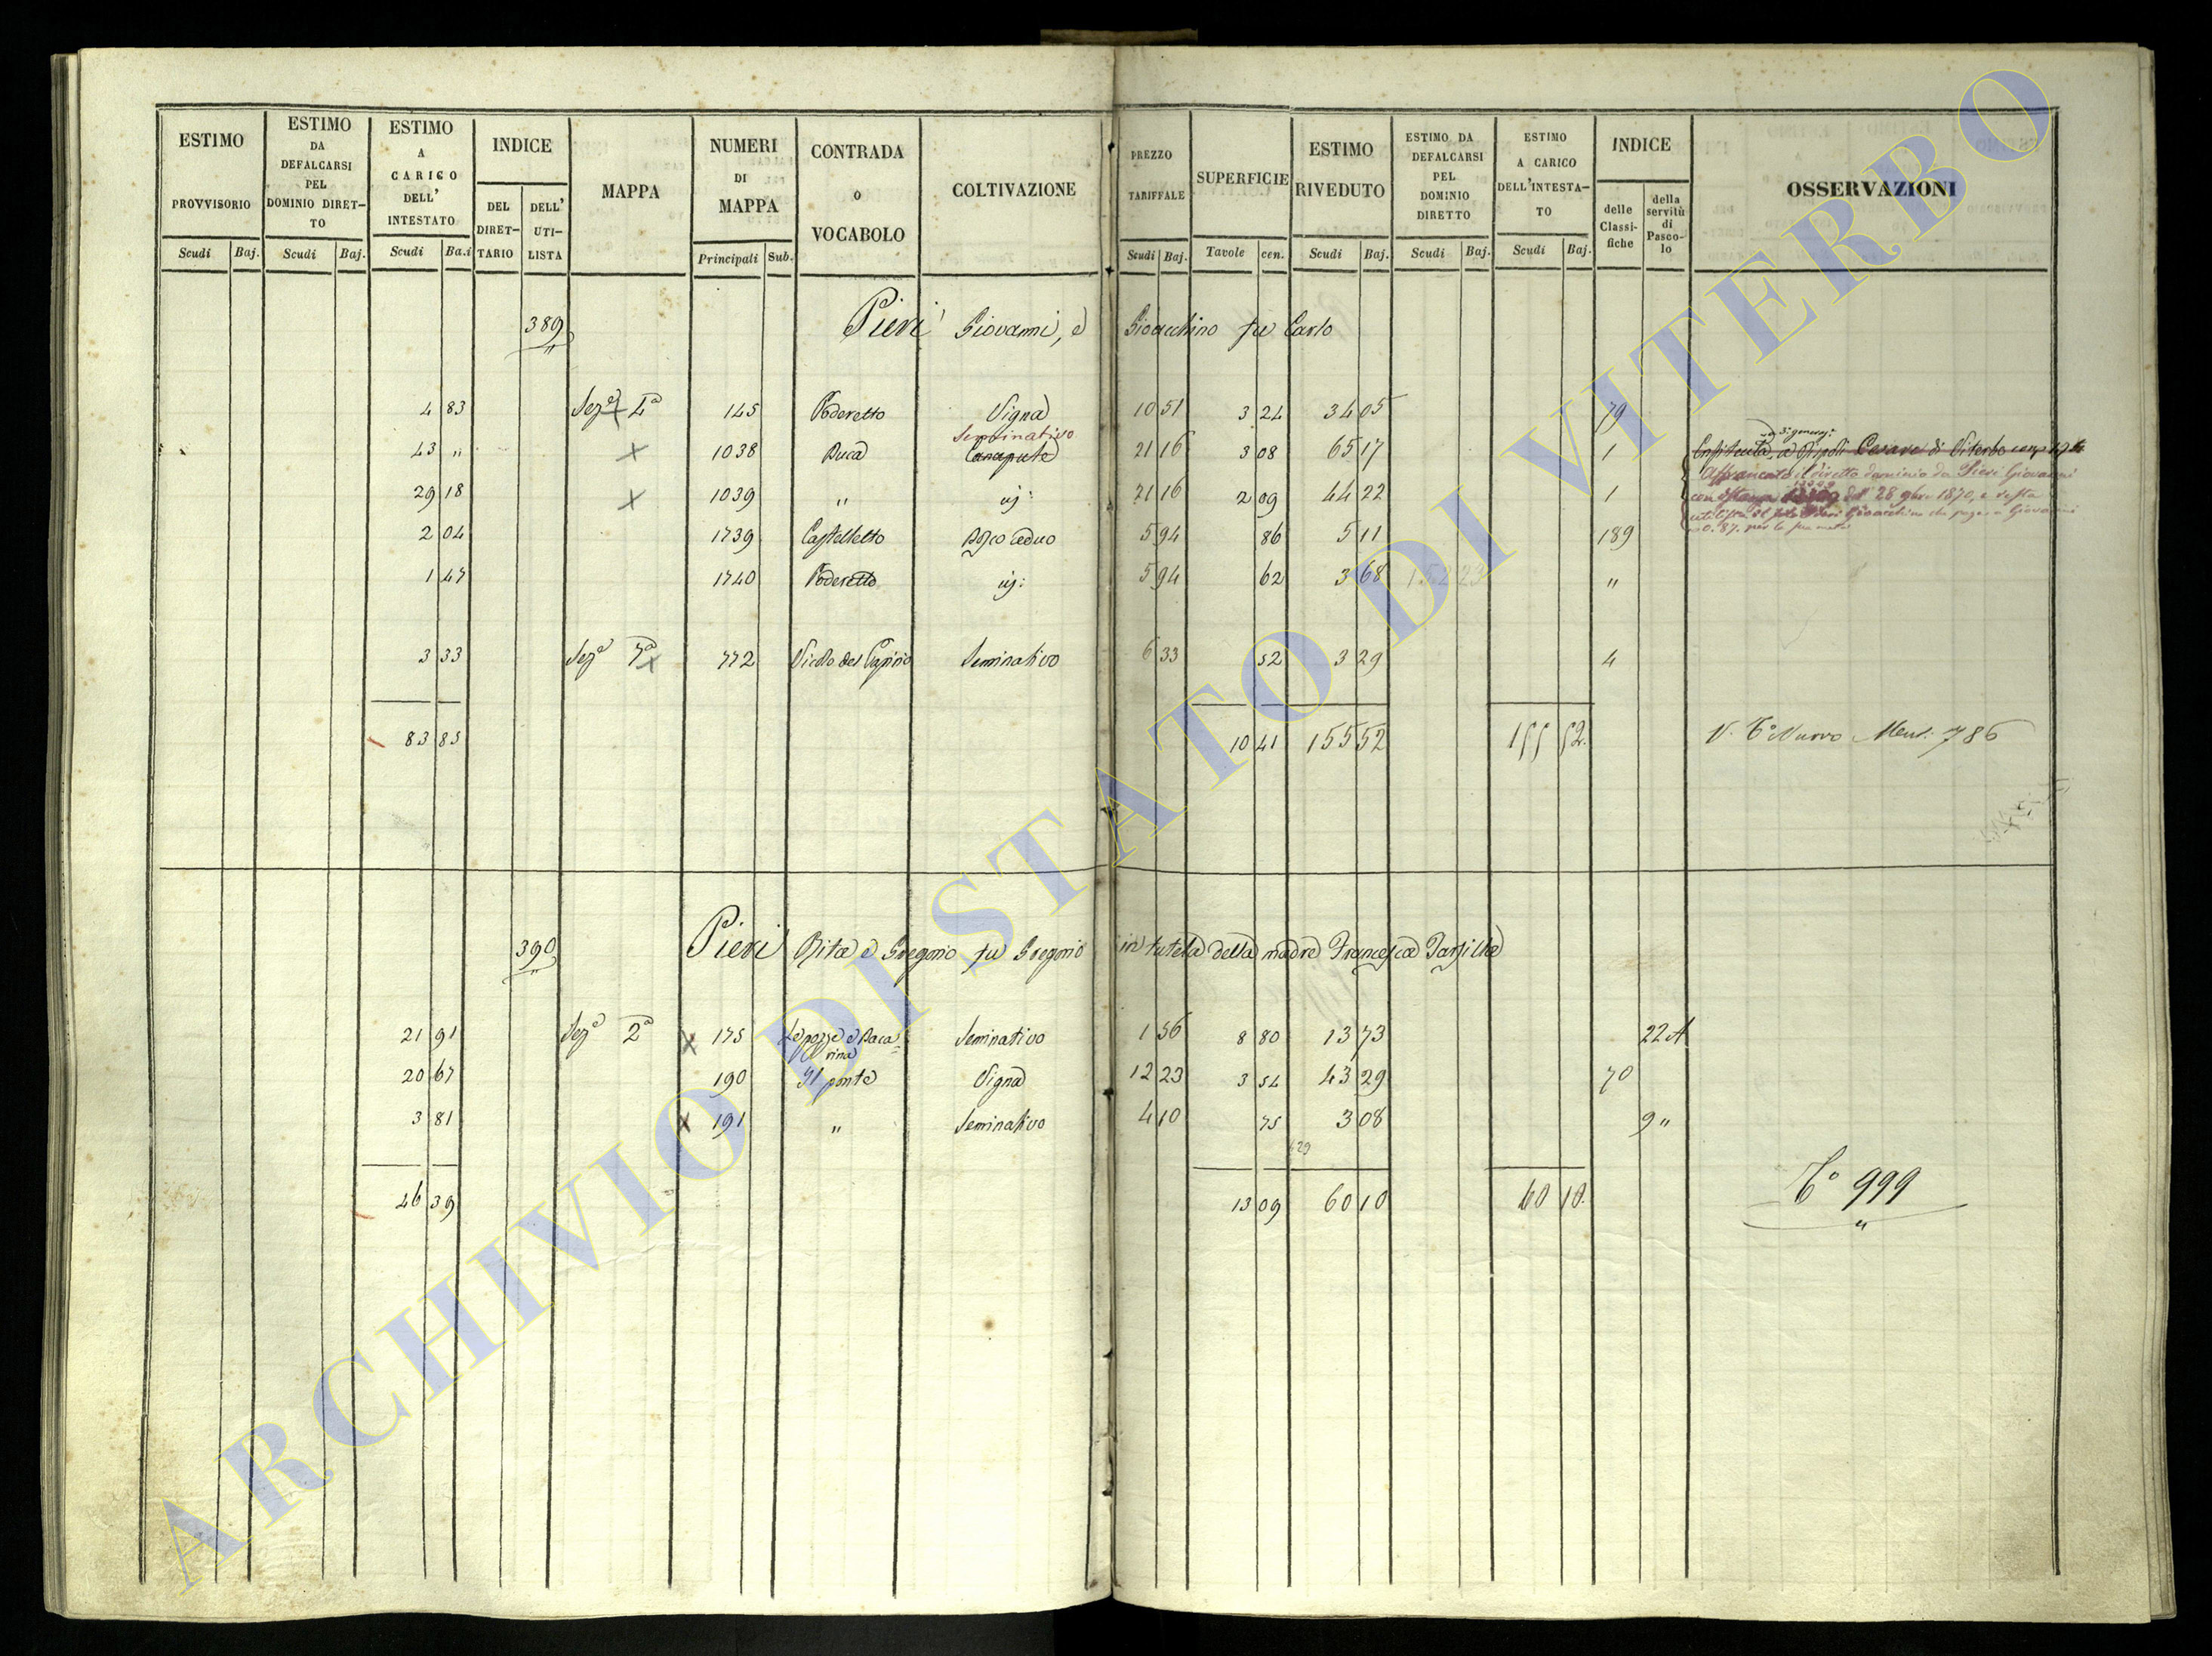 ESTIMO PROVVISORIO Scudi Baj.
ESTIMO DA DEFALCARSI PEL DOMINIO DIRET- TO Scudi Baj.
ESTIMO A CARICO DELL' INTESTATO Scudi Ba.i
INDICE DEL DIRET- TARIO DELL' UTI- LISTA
MAPPA
NUMERI DI MAPPA Principali Sub.
CONTRADA o VOCABOLO
COLTIVAZIONE
PREZZO TARIFFALE Scudi Baj.
SUPERFICIE Tavole cen.
ESTIMO RIVEDUTO Scudi Baj.
ESTIMO DA DEFALCARSI PEL DOMINIO DIRETTO Scudi Baj.
ESTIMO A CARICO DELL'INTESTA- TO Scudi Baj.
INDICE delle Classi- fiche della servitù di Pasco- lo
OSSERVAZIONI
389 Pieri Giovanni, e Gioacchino fu Carlo
4 83 Seze 4a 145 Poderetto Vigna 10 51 3 24 34 05 79
Seminativo
43 " 1038 Buca Canapule 21 16 3 08 65 17 1 a Cesare di Viterbo
29 18 1039 " ij: 21 16 2 09 44 22 1
Affrancato il diretto dominio da Pieri Giovanni
28 9bre 1870, e resta
Gioacchino che paga a Giovanni
0.87. per la sua metà
2 04 1739 Castelletto Bosco ceduo 5 94 86 5 11 189
1 47 1740 Poderetto ij: 5 94 62 3 68 152 23 "
3 33 Seze 7a 772 Vicolo del Seminativo 6 33 52 3 29 4
83 85 10 41 155 52 155 52. V. To Nuovo Menz. 786
390 Pieri Rita e Gregorio fu Gregorio in tutela della madre Francesca Tarsilla
21 91 Seze 2a X 175 Le pozze e Baca= rina Seminativo 1 56 8 80 13 73 22 A
20 67 190 Il ponte Vigna 12 23 3 54 43 29 70
3 81 X 191 " Seminativo 4 10 75 3 08 9 "
629
46 39 13 09 60 10 60 10. To 999
ARCHIVIO DI STATO DI VITERBO